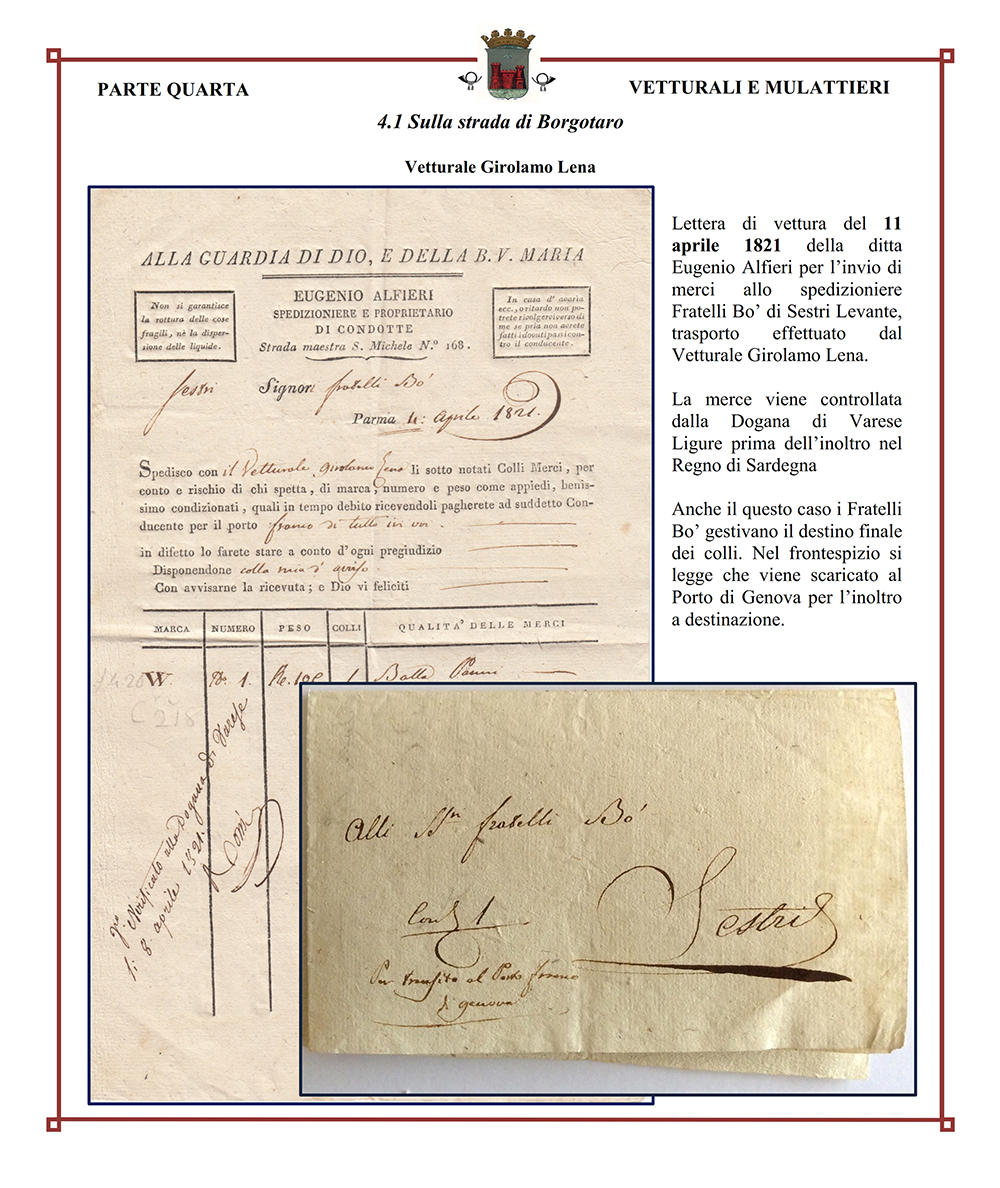 PARTE QUARTA
VETTURALI E MULATTIERI
4.1 Sulla strada di Borgotaro
Vetturale Girolamo Lena
ALLA GUARDIA DI DIO, E DELLA B. V. MARIA
Non si garantisce
la rottura delle cose
fragili, nè la disper-
sione delle liquide.
EUGENIO ALFIERI
SPEDIZIONIERE E PROPRIETARIO
DI CONDOTTE
Strada maestra S. Michele N.º 168.
In caso d' avaria
ecc., o ritardo non po-
trete rivolgerviverso di
me se pria non avrete
fatti i dovuti passi con-
tro il conducente.
Sestri Signori fratelli Bo'
Parma 11: Aprile 1821.
Spedisco con il Vetturale Girolamo Lena li sotto notati Colli Merci, per
conto e rischio di chi spetta, di marca, numero e peso come appiedi, benis-
simo condizionati, quali in tempo debito ricevendoli pagherete ad suddetto Con-
ducente per il porto franco di tutto in voi.
in difetto lo farete stare a conto d'ogni pregiudizio
Disponendone colla mia d'avviso.
Con avvisarne la ricevuta; e Dio vi feliciti
MARCA NUMERO PESO COLLI QUALITA' DELLE MERCI
W. No. 1. 1 Balla Panni
Verificato alla Dogana di Varese
li 8 aprile 1821.
Lettera di vettura del 11
aprile 1821 della ditta
Eugenio Alfieri per l'invio di
merci allo spedizioniere
Fratelli Bo' di Sestri Levante,
trasporto effettuato dal
Vetturale Girolamo Lena.
La merce viene controllata
dalla Dogana di Varese
Ligure prima dell'inoltro nel
Regno di Sardegna
Anche il questo caso i Fratelli
Bo' gestivano il destino finale
dei colli. Nel frontespizio si
legge che viene scaricato al
Porto di Genova per l'inoltro
a destinazione.
Alli Sig.ri fratelli Bó
Sestri
Con 1
Per transito al Porto franco
di genova